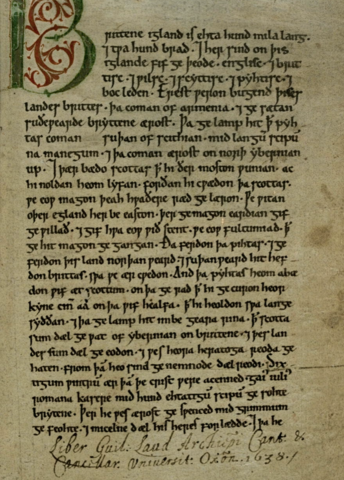 Brittene igland is ehta hund mila lang.
⁊ tƿa hund brad. ⁊ her sind on þis
iglande fif geþeode. englisc. ⁊ brit
tisc. ⁊ ƿilsc. ⁊ scyttisc. ⁊ pyhtisc. ⁊
boc leden. Erest ƿeron bugend þises
landes brittes. þa coman of armenia. ⁊ ge sætan
suðeƿearde bryttene ærost. Þa ge lamp hit ꝥ pyh
tas coman suþan of scithian. mid langū scipū
na manegum. ⁊ þa coman ærost on norþ ybernian
up. ⁊ þær bædo scottas ꝥ hi ðer moston ƿunian. ac
hi noldan heom lyfan. forðan hi cƿædon þa scottas.
ƿe eoƿ magon þeah hƿaðere ræd ge læron. Ƿe ƿitan
oþer egland her be easton. þer ge magon eardian gif
ge ƿillað. ⁊ gif hƿa eoƿ ƿið stent. ƿe eoƿ fultumiað. ꝥ
ge hit magon ge gangan. Ða ferdon þa pihtas. ⁊ ge
ferdon þis land norþan ƿeard. ⁊ suþan ƿeard hit hef
don brittas. sƿa ƿe ær cƿedon. And þa pyhtas heom abæ
don ƿif æt scottum. on þa ge rad ꝥ hi ge curon heora
kyne cin aa on þa ƿif healfa. ꝥ hi heoldon sƿa lange
syððan. ⁊ þa ge lamp hit imbe geara rina. ꝥ scotta
sum dæl ge ƿat of ybernian on brittene. ⁊ þes lan
des sum dæl ge eodon. ⁊ ƿes heora heratoga reoda ge
haten. from þā heo sind ge nemnode dæl reodi. Six
tigum ƿintrū ær þā þe crist ƿere acenned. gaiꝰ iuliꝰ
romana kasere mid hund ehtatigū scipū ge sohte
brytene. Þer he ƿes ærost ge sƿenced mid grimmum
ge feohte. ⁊ micelne dæl his heres for lædde. ⁊ þa he
Liber Guil. Laud Archiepi Cant. &
Cancellar. Universit. Oxon. 1638.